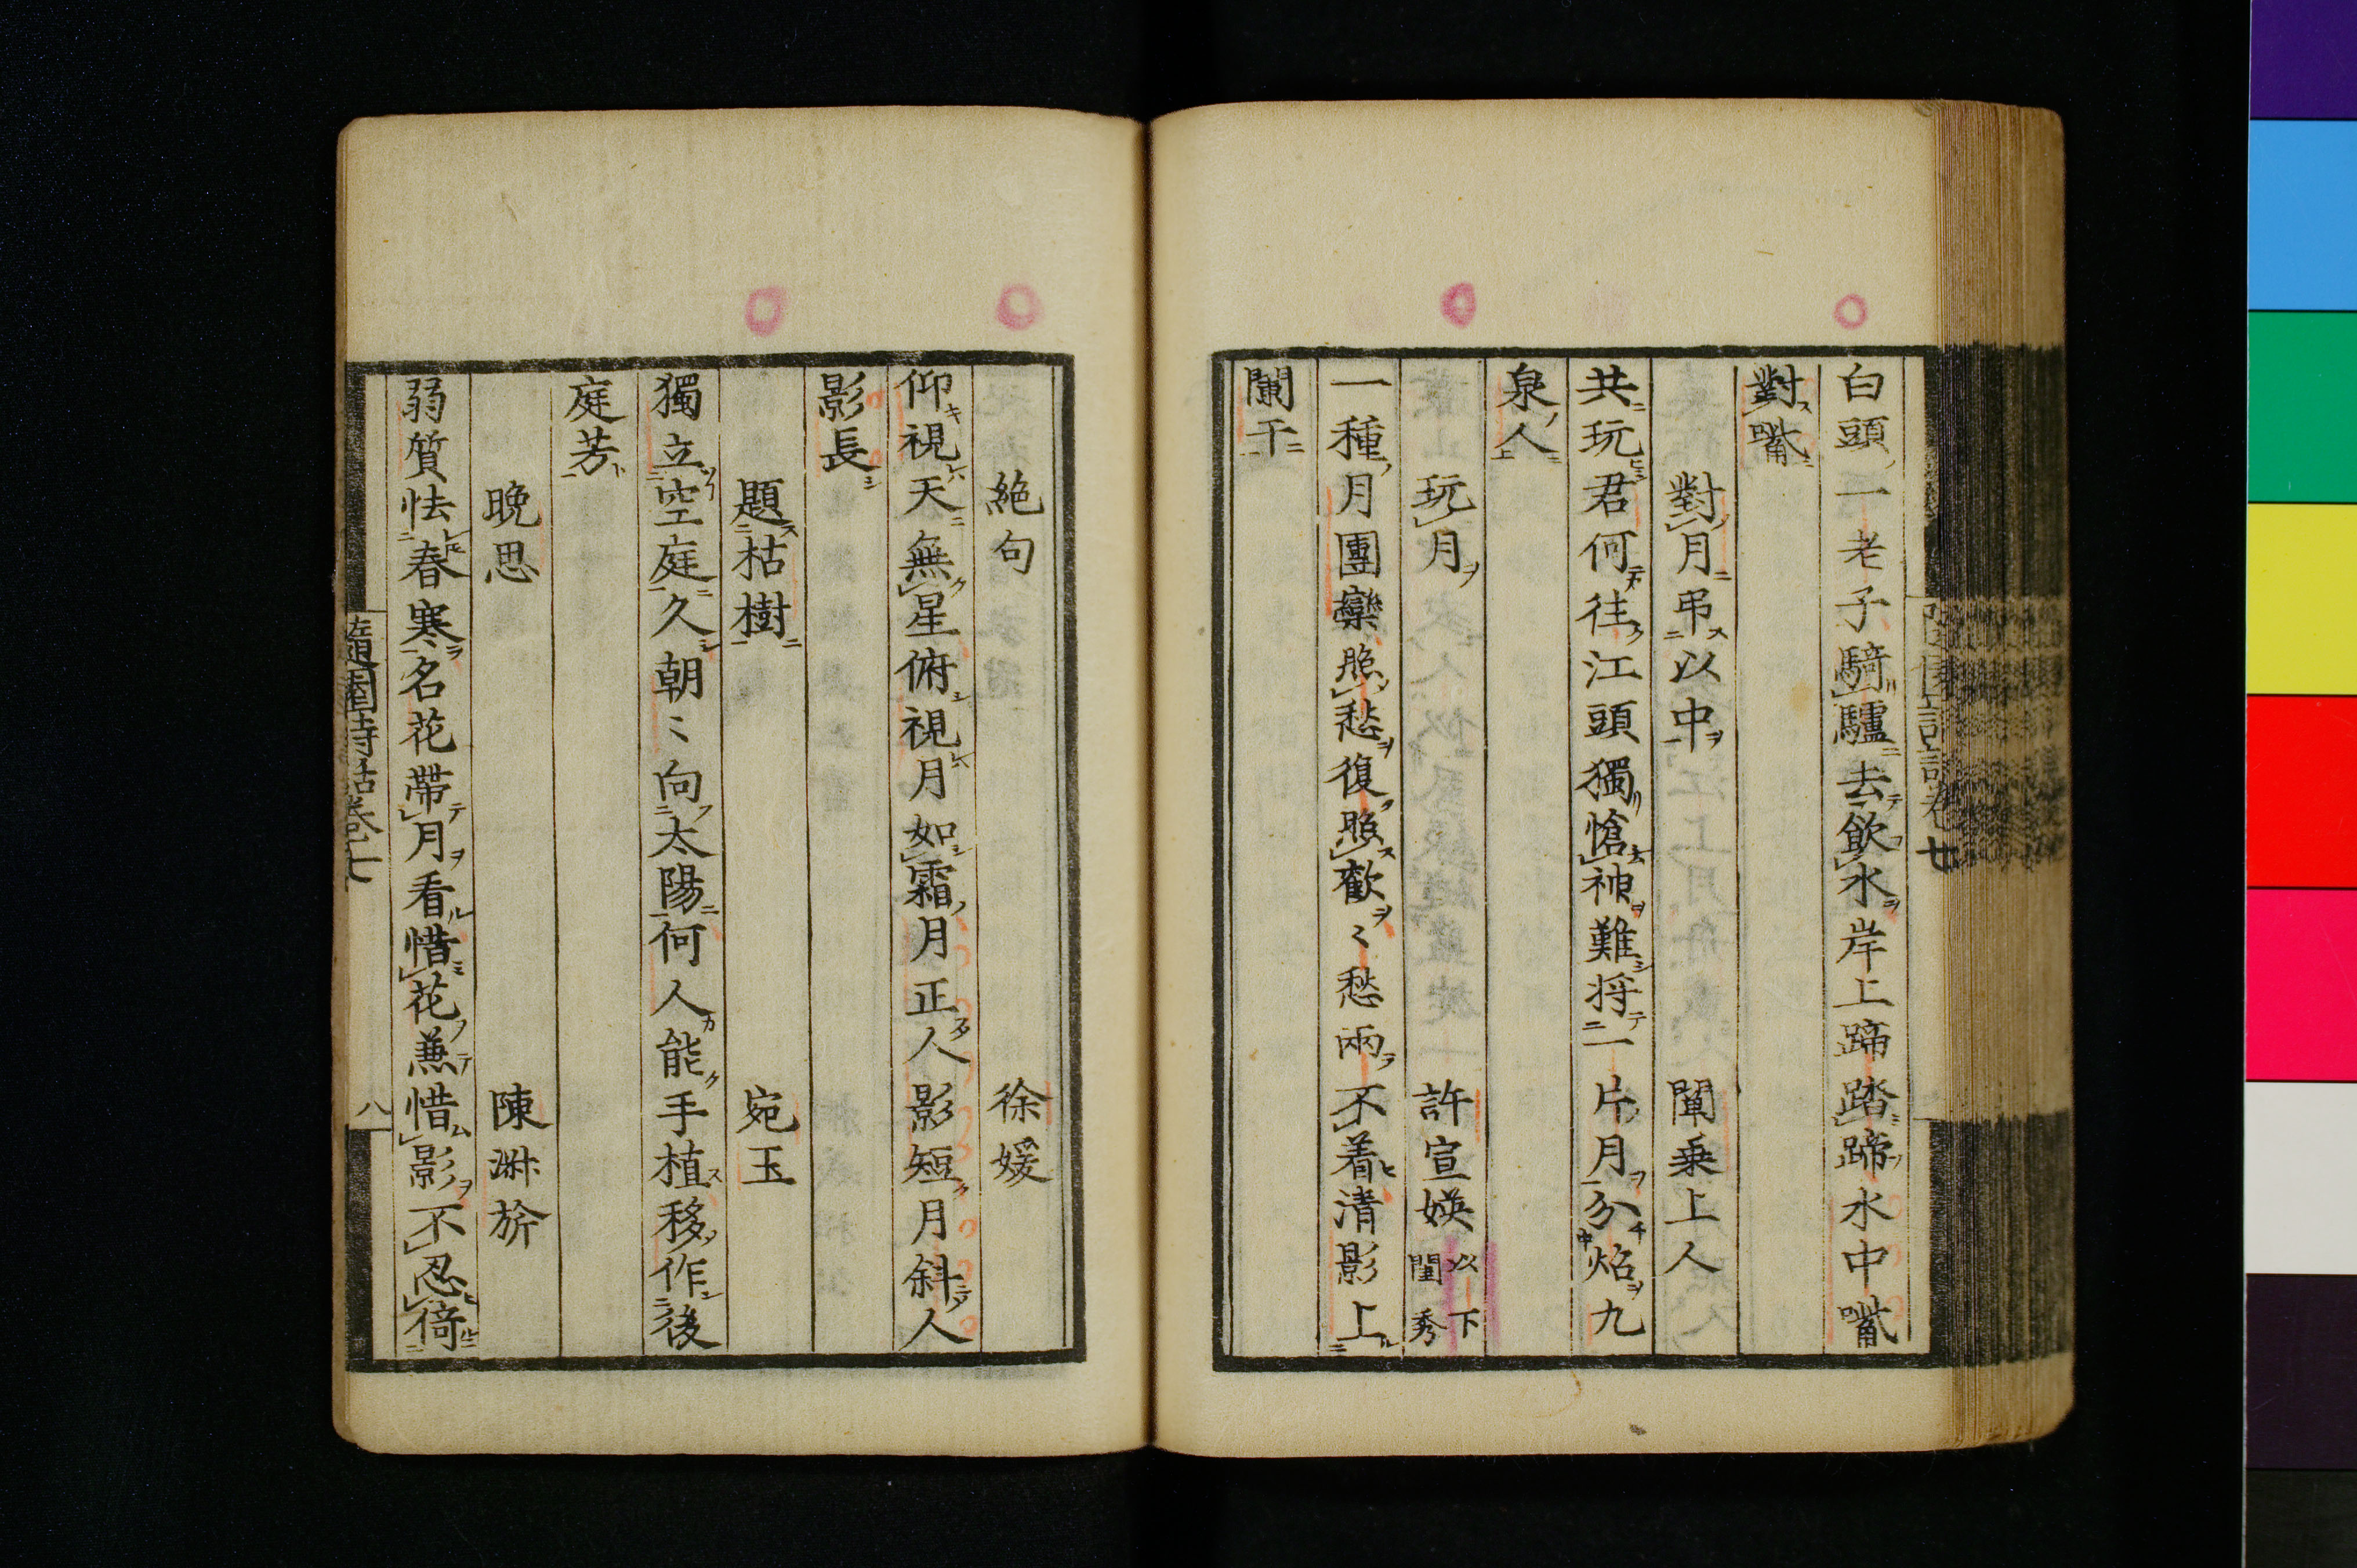 白頭一老子騎驢去飲水岸上蹄踏蹄水中嘴
對嘴
對月弔以中　闡乗上人
共玩君何往江頭獨愴神難将一片月分焰九
泉人
玩月　許宣媖 以下閨秀
一種月團欒照愁復照歡〻愁兩不着清影上
闌干
絶句　徐媛
仰視天無星俯視月如霜月正人影短月斜人
影長
題枯樹　宛玉
獨立空庭久朝〻向太陽何人能手植移作後
庭芳
晩思　陳淋旂
弱質怯春寒名花帶月看惜花兼惜影不忍倚
隨園詩話卷七
八